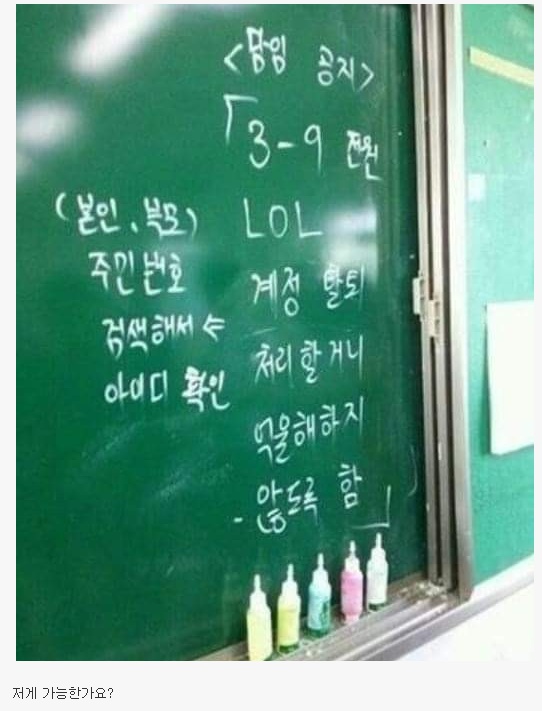 <담임 공지>
「3-9 전원
LOL
계정 탈퇴
처리할거니
억울해하지
않도록 함」
(본인, 부모)
주민번호
검색해서 ⇐
아이디 확인
저게 가능한가요?